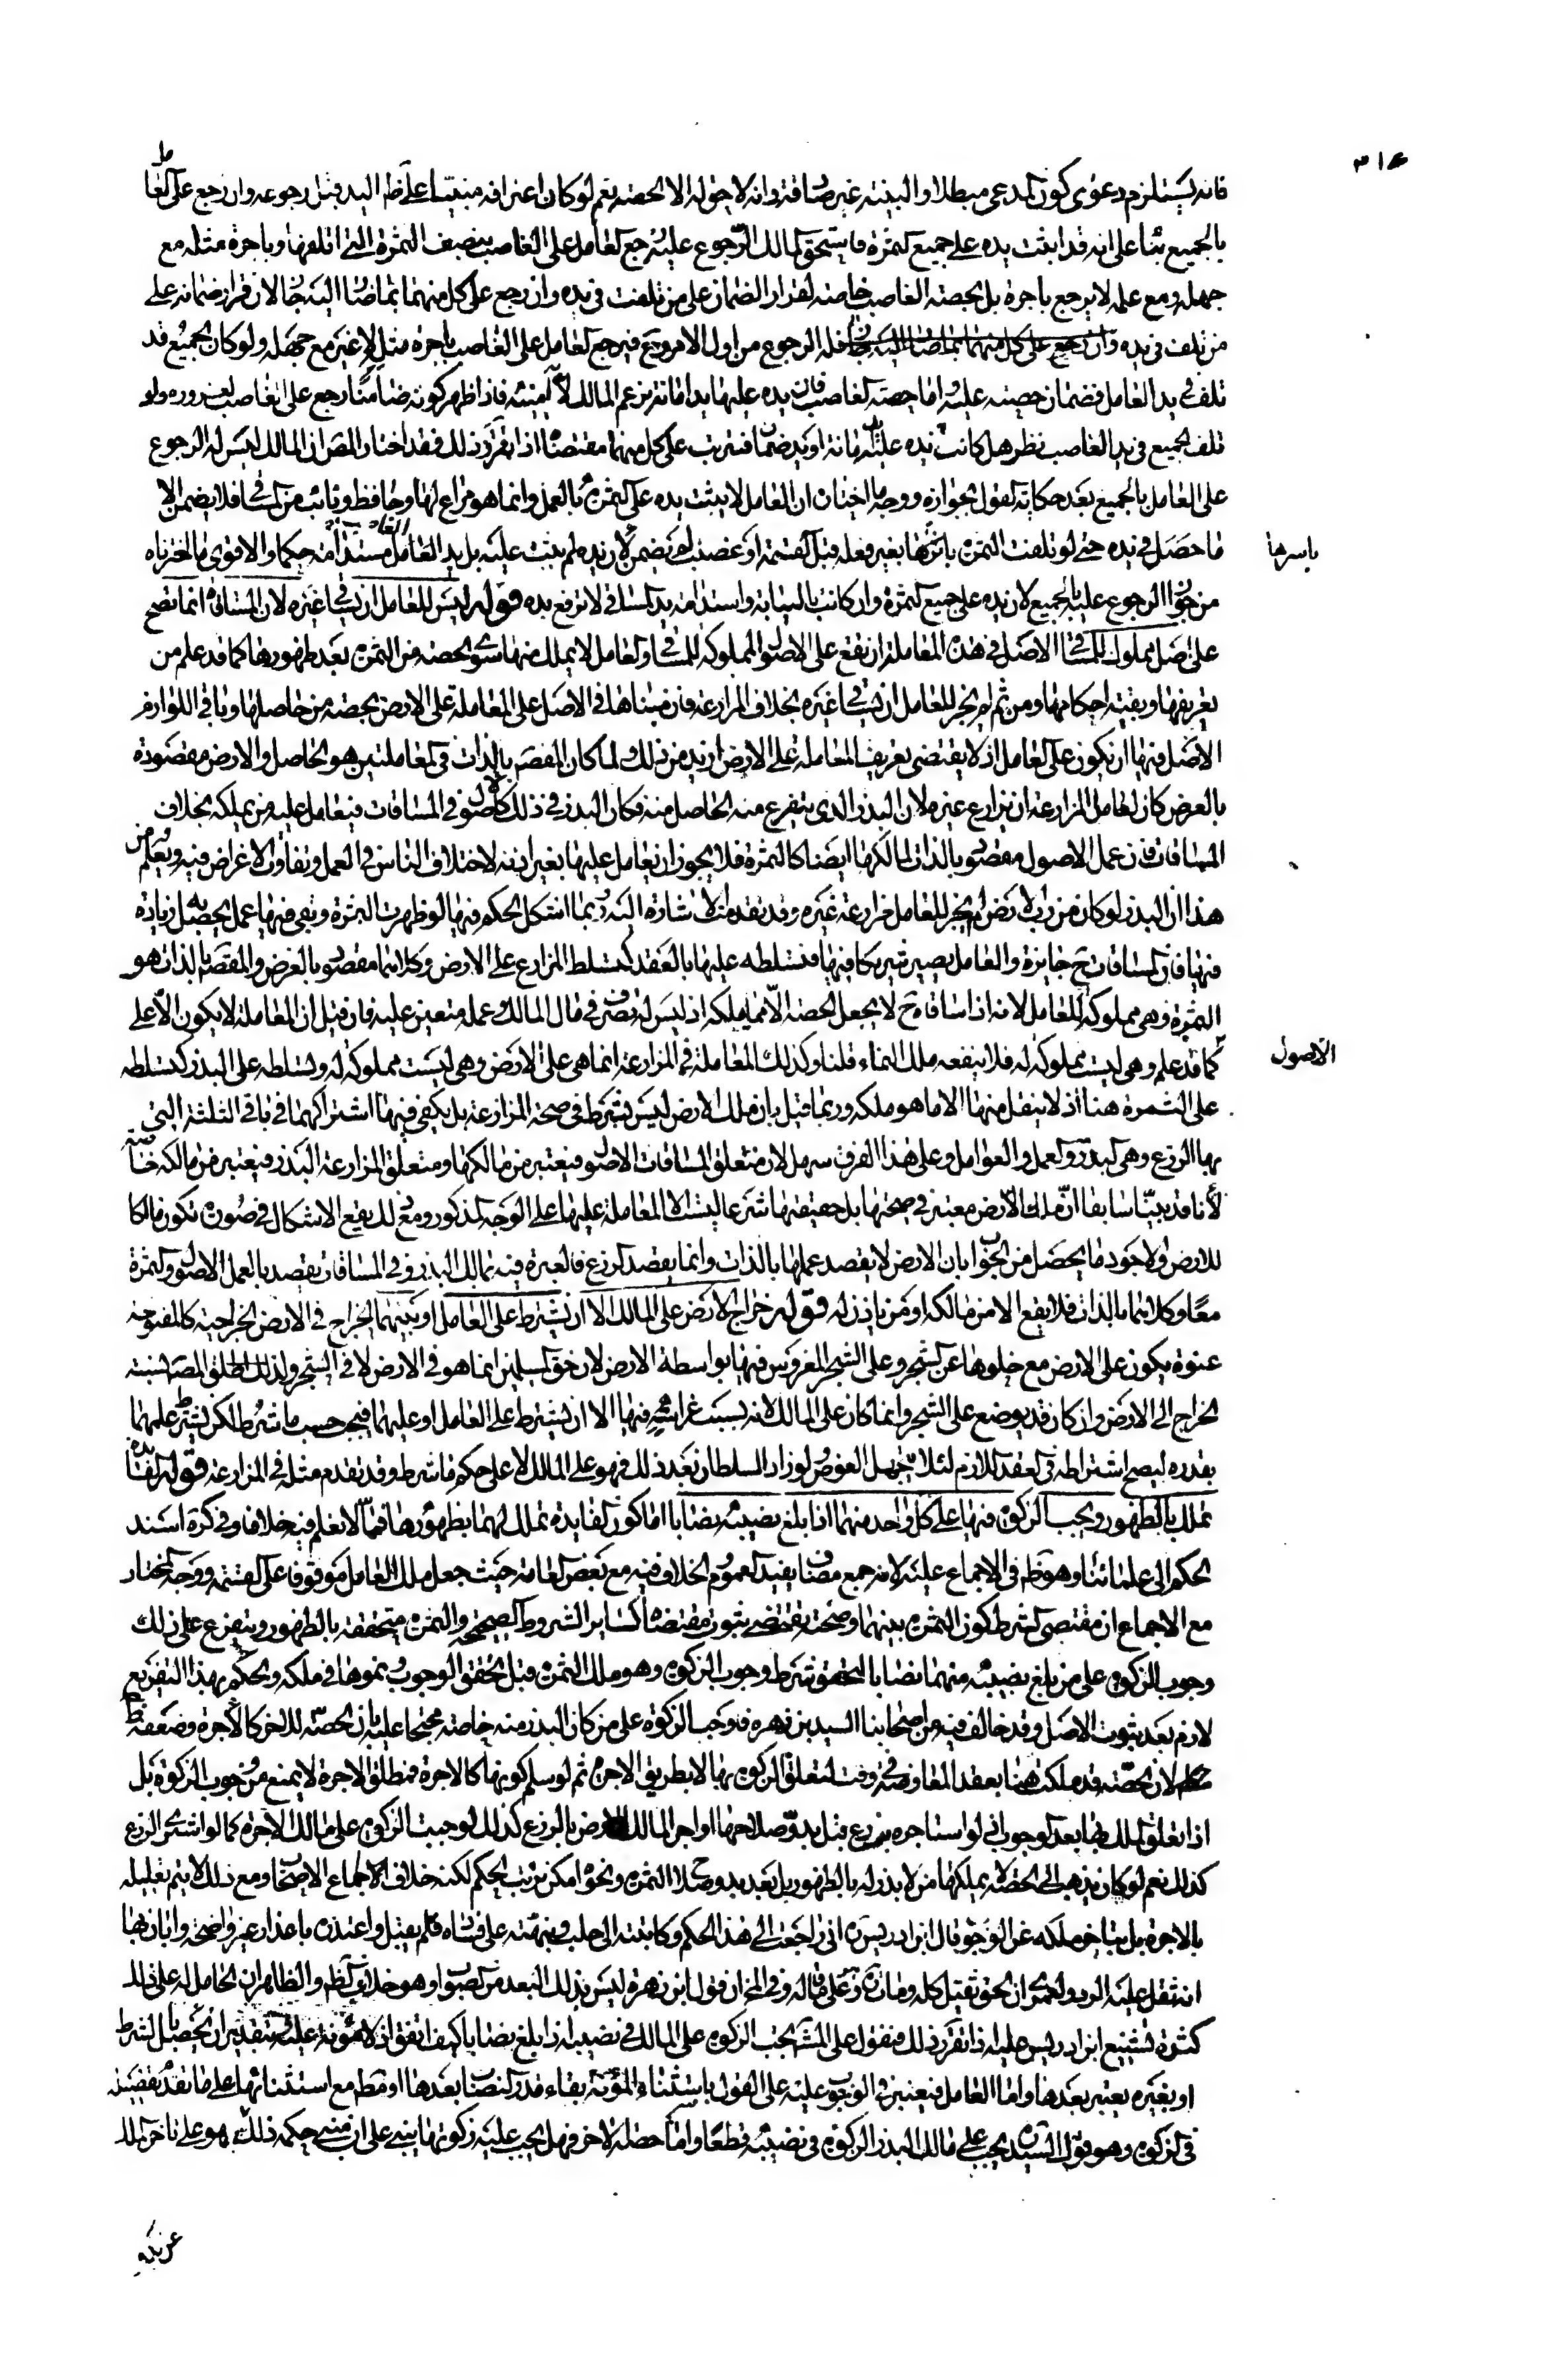 ٣١٤
فانه يستلزم دعوى كون المدعى مبطلا والبينة غير صادقة وانه لا حق له الا الحصة نعم لو كان اعترافه مبنيا على ظاهر اليد قبل رجوعه وان رجع على العامل
بالجميع بناء على انه قد اثبت يده على جميع الثمرة فاستحق المالك الرجوع عليه رجع العامل على الغاصب بنصف الثمرة التى اتلفها وباجرة مثله مع
جهله ومع علمه لا يرجع باجرة بل بحصته الغاصب خاصة لقرار الضمان على من تلفت فى يده وان رجع على كل منهما بما صار اليه جاز لان قرار ضمانه على
من تلف فى يده وان رجع على كل منهما بما صار اليه جاز فله الرجوع من اول الامر وح فيرجع العامل على الغاصب باجرة مثله لا غير مع جهله ولو كان الجميع قد
تلف فى يد العامل فضمان حصته عليه واما حصة الغاصب فان يده عليها يد امانة بزعم المالك لانه امينه فاذا ظهر كونه ضامنا رجع على الغاصب لغروره ولو
تلف الجميع فى يد الغاصب نظر هل كانت يده عليه يد امانة او يد ضمان فترتب على كل منهما مقتضاه اذا تقرر ذلك فقد اختار المص ان المالك ليس له الرجوع
على العامل بالجميع بعد حكايته القول بجوازه ووجه ما اختاره ان العامل لا يثبت يده على الثمرة بالعمل وانما هو مراع لها وحافظ ونائب من المساقى فلا يضمن الا
ما حصل فى يده حتى لو تلفت الثمرة باسرها بغير فعله قبل القسمة او غصبت لم يضمن لان يده لم يثبت عليه بل يد الغاصب مستدامة حكما والاقوى ما اخترناه
باسرها
من جواز الرجوع عليه بالجميع لان يده على جميع الثمرة وان كانت بالنيابة واستدامة يد المساقى لا ترفع يده قوله ليس للعامل ان يساقى غيره لان المساقاة انما تصح
على اصل مملوك للمساقى الاصل فى هذه المعاملة ان تقع على الاصول المملوكة للمساقى والعامل لا يملك منها سوى حصته من الثمرة بعد ظهورها كما قد علم من
تعريفها وبقية احكامها ومن ثم لم يجز للعامل ان يساقى غيره بخلاف المزارعة فان مبناها فى الاصل على المعاملة على الارض بحصة من حاصلها وباقى اللوازم
الاصل فيها ان تكون على العامل اذ لا يقتضى تعريف المعاملة على الارض ازيد من ذلك ولما كان المقصود بالذات فى المعاملتين هو الحاصل والارض مقصودة
بالعرض كان لعامل المزارعة ان يزارع غيره لان البذر الذى يتفرع منه الحاصل منه فكان البذر فى ذلك كالاصول فى المساقات فيعامل عليه من يملكه بخلاف
المساقات فان عمل الاصول مقصود بالذات لمالكها ايضا كالثمرة فلا يجوز ان يعامل عليها بغير اذنه لاختلاف الناس فى العمل وتفاوت الاغراض فيه ويعلم من
هذا ان البذر لو كان من رب الارض لم يجز للعامل مزارعة غيره وقد تقدمت الاشارة اليه وربما اشكل الحكم فيها لو ظهرت الثمرة وبقى فيها عمل يحصل به زيادة
فيها فان المساقات ح جائزة والعامل يصير شريكا فيها فتسلطه عليها بالعقد كتسلط المزارع على الارض وكلاهما مقصود بالعرض والمقصود بالذات هو
الثمرة وهى مملوكة للعامل لانه اذا ساقاه ح لا يجعل الحصة الا مما يملكه اذ ليس له تصرف فى مال المالك وعمله متعين عليه فان قيل ان المعاملة لا يكون الا على
الاصول
كما قد علم وهى ليست مملوكة له فلا ينفعه ملك النماء قلنا وكذلك المعاملة فى المزارعة انما هى على الارض وهى ليست مملوكة له وتسلطه على البذر كتسلطه
على الثمرة هنا اذ لا ينقل منها الا ما هو ملكه وربما قيل بان ملك الارض ليس شرط فى صحة المزارعة بل يكفى فيها اشتراكهما فى باقى الثلثة التى
بها الزرع وهى البذر والعمل والعوامل وعلى هذا الفرق سهل لان متعلق المساقات الاصول فيعتبر من مالكها ومتعلق المزارعة البذر فيعتبر من مالكه خاصة
لانا قد بينا سابقا ان ملك الارض معتبر فى صحتها بل حقيقتها شرعا ليست الا المعاملة عليها على الوجه المذكور ومع ذلك يقع الاشكال فى صورة تكون مالكا
للارض ولاجود ما يحصل من الجواب بان الارض لا يقصد عملها بالذات وانما يقصد الزرع فالعبرة فيه بمالك البذر وفى المساقات يقصد بالعمل الاصول والثمرة
معا وكلاهما بالذات فلا يقع الا من مالكه او من ياذن له قوله خراج الارض على المالك الا ان يشترط على العامل او بينهما الخراج فى الارض الخراجية كالمفتوحة
عنوة يكون على الارض مع خلوها عن الشجر وعلى الشجر المغروس فيها بواسطة الارض لان حق المسلمين انما هو فى الارض لا فى الشجر ولذلك اطلق المص نسبة
الخراج الى الارض وان كان قد يوضع على الشجر وانما كان على المالك لانه بسبب غراسه فيها الا ان يشترط على العامل او عليهما فبحسب ما شرط لكن يشترط علمهما
بقدره ليصح اشتراطه فى العقد اللازم لئلا يجهل العوض ولو زاد السلطان بعد ذلك فهو على المالك لا على حكم ما شرط وقد تقدم مثله فى المزارعة قوله الفائدة
تملك بالظهور ويجب الزكوة فيها على كل واحد منهما اذا بلغ نصيبه نصابا اما كون الفايدة تملك لهما بظهورها فمما لا نعلم فيه خلافا وفى كرة اسند
الحكم الى علمائنا وهو ظ فى الاجماع عليه لانه جمع مضاف يفيد العموم الخلاف فيه مع بعض العامة حيث جعل ملك العامل موقوفا على القسمة ووجه المختار
مع الاجماع ان مقتضى الشرط كون الثمرة بينهما وصحته يقتضى ثبوت مقتضاه كسائر الشروط الصحيحة والثمرة متحققة بالظهور ويتفرع على ذلك
وجوب الزكوة على من بلغ نصيبه منهما نصابا لتحقق شرط وجوب الزكوة وهو ملك الثمرة قبل تحقق الوجوب ونموها فى ملكه والحكم بهذا التفريع
لازم بعد ثبوت الاصل وقد خالف فيه من اصحابنا السيد بن زهره فاوجب الزكوة على من كان البذر منه خاصة محتجا عليه بان الحصة للاخر كالاجرة وضعفه ظ
لان الحصة قد ملكت هنا بعقد المعاوضة فى وقت لتعلق الزكوة بها لا بطريق الاجرة ثم لو سلم كونها كالاجرة فمطلق الاجرة لا يمنع من وجوب الزكوة بل
اذا تعلق الملك بها بعد الوجوب اذ لو استاجره بزرع قبل بدو صلاحها او اجر المالك الارض بالزرع كذلك لوجبت الزكوة على مالك الاجرة كما لو اشترى الزرع
كذلك نعم لو كان يذهب الى ان الحصة لا يملكها من لا بذر له بالظهور بل بعد بدو صلاح الثمرة ونحوه امكن ترتب الحكم لكنه خلاف اجماع الاصحاب ومع ذلك لا يتم بتعليله
بالاجرة بل بتاخر ملكه عن الوجوب قال ابن ادريس ره انى راجعت فى هذا الحكم وكاتبته الى حلب ونبهته على فساده فلم يقبل واعتذر باعذار غير واضحة وابان بها
انه ثقل عليه الرد ولعمرى ان الحق ثقيل كله ومات ره وهو على ما قاله وفى المخ ان قول ابن زهرة ليس بذلك البعد من الصواب وهو خلاف الظ والظاهر ان الحامل له على ذلك
كثرة تشنيع ابن ادريس عليه اذا تقرر ذلك فنقول على المشهور تجب الزكوة على المالك فى نصيبه اذا بلغ نصابا كيف اتفق اذ لا مؤنة عليه وبتقدير ان تحصل بالشرط
او بغيره يعتبر بعدها واما العامل فيعتبر فى الوجوب عليه على القول باستثناء المؤنة بقاء قدر النصاب بعدها او مطلقا مع استثنائها على ما تقدم تفصيله
فى الزكوة وهو قول السيد ره يجب على مالك البذر الزكوة فى نصيبه قطعا واما حصة الاخر فهل يجب عليه زكوتها يبنى على ان منع حكمه ذلك هو على تاخر الملك
عن بدو